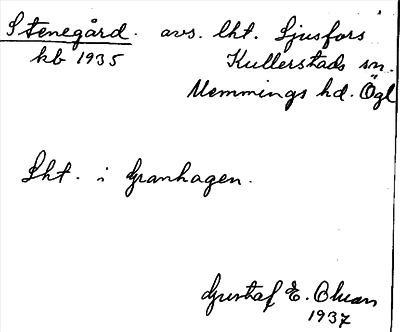 Stenegård. avs. lht. Ljusfors
kb 1935 Kullerstads sn.
Memmings hd. Ögl
Lht. i Granhagen.
Gustaf E.
1937